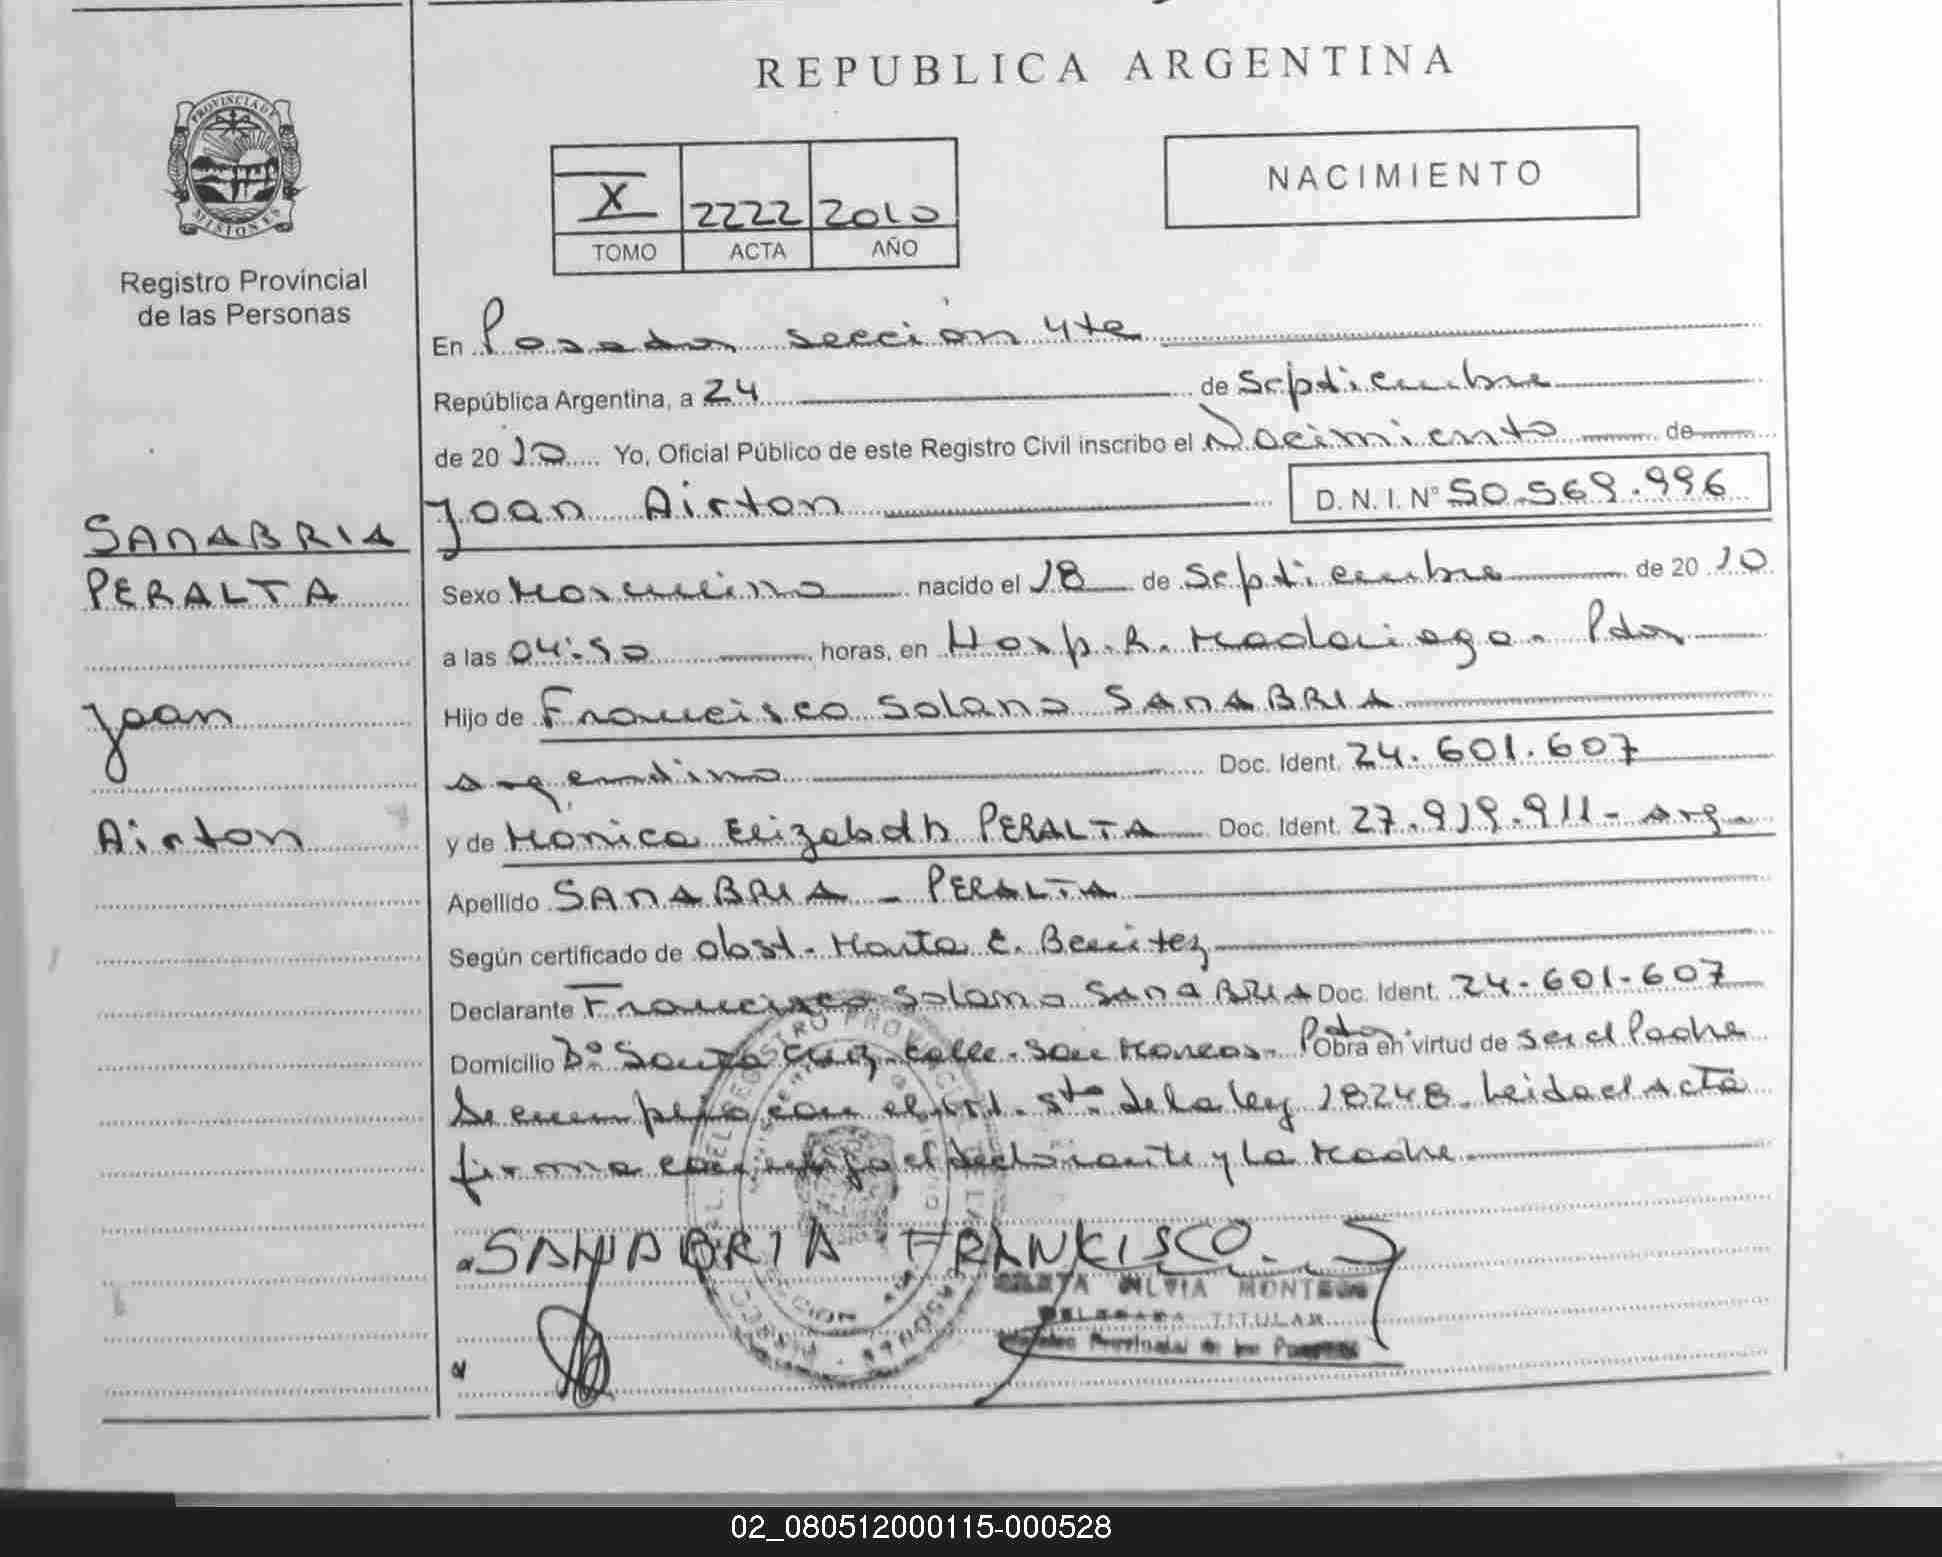 REPUBLICA ARGENTINA
PROVINCIA DE
MISIONES
Registro Provincial
de las Personas
NACIMIENTO
X 2222 2010
TOMO ACTA AÑO
En Posadas sección 4ta
República Argentina, a 24 de Septiembre
de 2010 Yo, Oficial Público de este Registro Civil inscribo el Nacimiento de
Joan Airton D.N.I. Nº 50.569.996
SANABRIA
PERALTA
Joan
Airton
Sexo Masculino nacido el 18 de Septiembre de 2010
a las 04:50 horas, en Hosp. R. Madariaga. Pdas
Hijo de Francisco Solano SANABRIA
argentino Doc. Ident. 24.601.607
y de Mónica Elizabeth PERALTA Doc. Ident. 27.919.911 - arg.
Apellido SANABRIA - PERALTA
Según certificado de obst. Marta E. Benitez
Declarante Francisco Solano SANABRIA Doc. Ident. 24-601-607
Domicilio Bº Santa Cruz calle San Marcos. Pdas Obra en virtud de ser el Padre
Se cumplió con el art. 5to de la ley 18248. Leida el Acta
firma conmigo el declarante y la Madre.
SANABRIA FRANKISCO. S
SILVIA MONTE
DELEGADA TITULAR
Provincial de las Personas
02_080512000115-000528